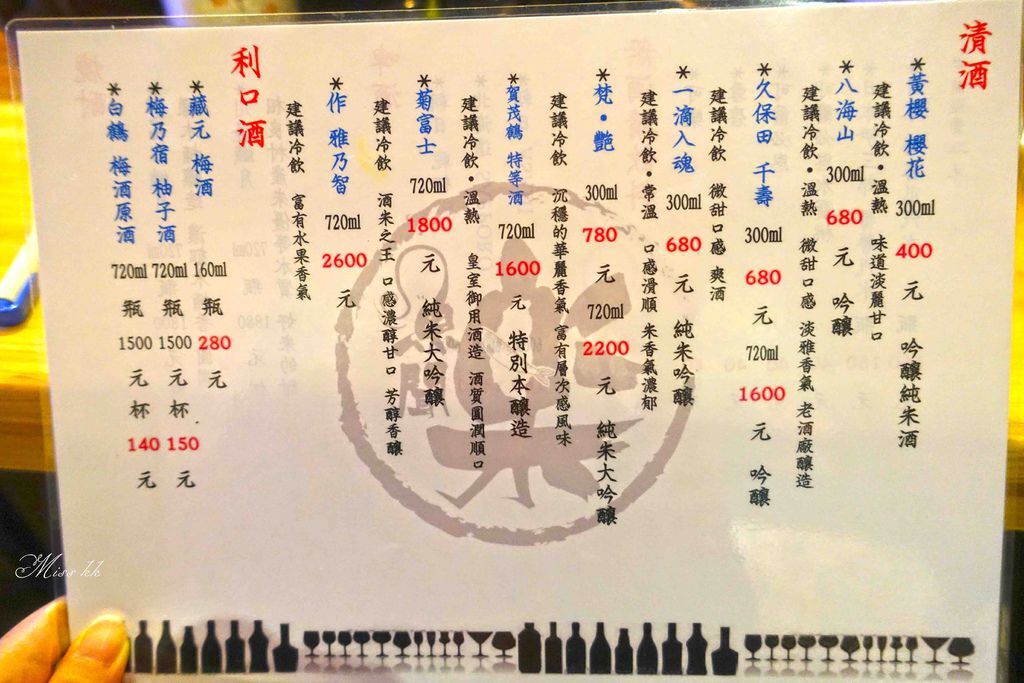 清酒
*黃櫻 櫻花 300ml 400 元 吟釀純米酒
建議冷飲•溫熱 味道淡麗甘口
*八海山 300ml 680 元 吟釀
建議冷飲•溫熱 微甜口感 淡雅香氣 老酒廠釀造
*久保田 千壽 300ml 680 元 720ml 1600 元 吟釀
建議冷飲 微甜口感 爽酒
*一滴入魂 300ml 680 元 純米吟釀
建議冷飲•常溫 口感滑順 米香氣濃郁
*梵•艷 300ml 780 元 720ml 2200 元 純米大吟釀
建議冷飲 沉穩的華麗香氣 富有層次感風味
*賀茂鶴 特等酒 720ml 1600 元 特別本釀造
建議冷飲•溫熱 皇室御用酒造 酒質圓潤順口
*菊富士 720ml 1800 元 純米大吟釀
建議冷飲 酒米之王 口感濃醇甘口 芳醇香釀
*作 雅乃智 720ml 2600 元
建議冷飲 富有水果香氣
利口酒
*藏元 梅酒 160ml 瓶 280 元
*梅乃宿 柚子酒 720ml 瓶 1500 元 杯 150 元
*白鶴 梅酒原酒 720ml 瓶 1500 元 杯 140 元
Miss kk